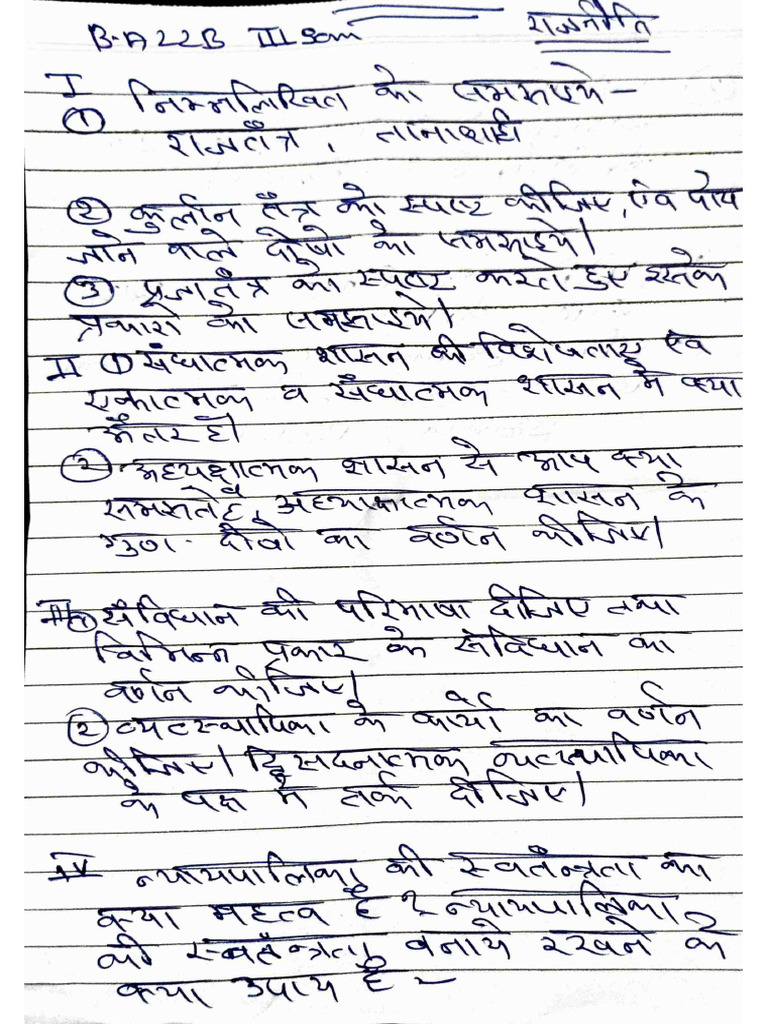 B.A 22B III Sem राजनीति
I
① निम्नलिखित को समझाइये –
राजतंत्र, तानाशाही
② कुलीन तंत्र को स्पष्ट कीजिए, एंव पाये
जाने वाले दोषो को समझाइये।
③ प्रजातंत्र को स्पष्ट करते हुए इसके
प्रकारो को समझाइये।
II ① संघात्मक शासन की विशेषताए एंव
एकात्मक व संघात्मक शासन मे क्या
अंतर है।
② अध्यक्षात्मक शासन से आप क्या
समझते है, अध्याक्षात्मक शासन के
गुण-दोषो का वर्णन कीजिए।
III ① संविधान की परिभाषा दीजिए तथा
विभिन्न प्रकार के संविधान का
वर्णन कीजिए।
② व्यवस्थापिका के कार्यो का वर्णन
कीजिए। द्विसदनात्मक व्यवस्थापिका
के पक्ष मे तर्क दीजिए।
IV न्यायपालिका की स्वतंन्त्रता का
क्या महत्व है? न्यायपालिका
की स्वतंन्त्रता बनाये रखने के
क्या उपाय है –